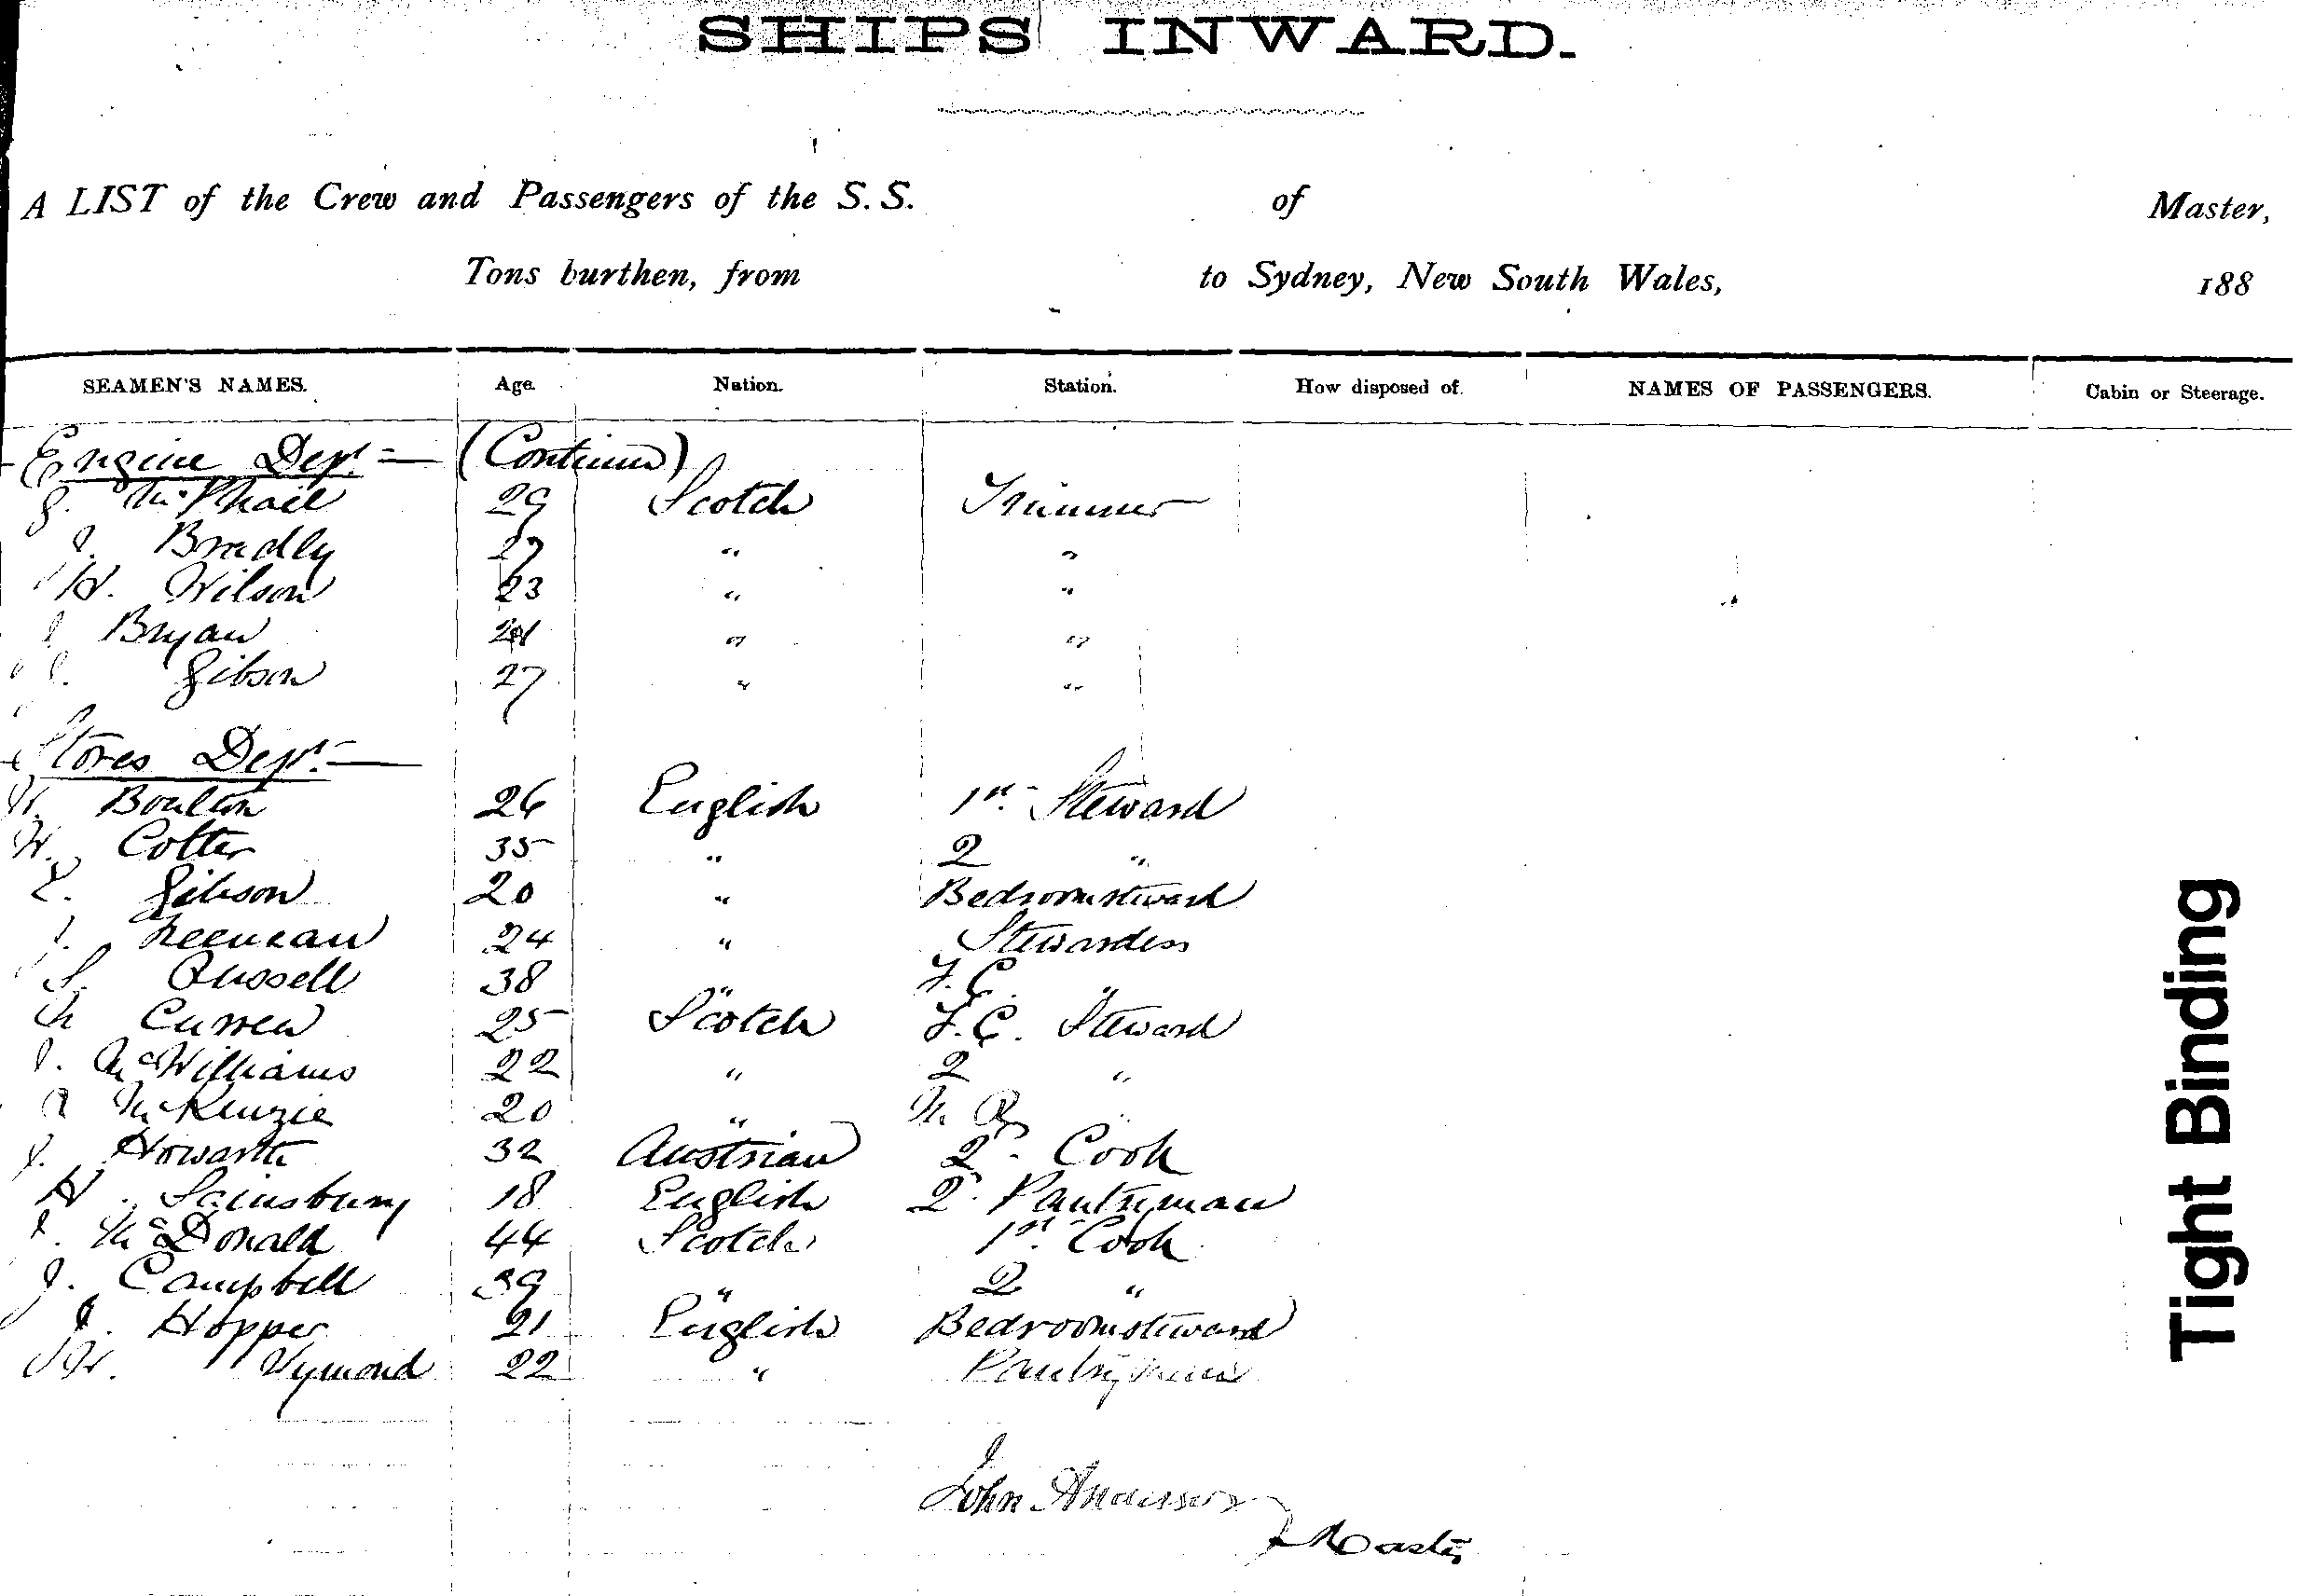 SHIPS INWARD.
A LIST of the Crew and Passengers of the S.S. of Master,
Tons burthen, from to Sydney, New South Wales, 188
SEAMEN'S NAMES. Age. Nation. Station. How disposed of. NAMES OF PASSENGERS. Cabin or Steerage.
Engine Dept. (Continued)
McPhail 29 Scotch Trimmer
Bradly 27 " "
H. Wilson 23 " "
Bryan " "
Gibson 27 " "
Stores Dept.
Boulton 26 English 1st. Steward
W. Cotter 35 " 2 "
Gibson 20 " Bedroomsteward
24 " Stewardess
S. Russell 38 " F.C. "
Curren 25 Scotch F.C. Steward
McWilliams 22 " 2 "
McKenzie 20 " "
Howarth 32 Austrian 2. Cook
H. Sainsbury 18 English 2. Pantryman
McDonald 44 Scotch 1st. Cook
J. Campbell 39 " 2 "
J. Hopper 21 English Bedroomsteward
W. Wymond 22 " Pantryman
John Anderson
Master
Tight Binding